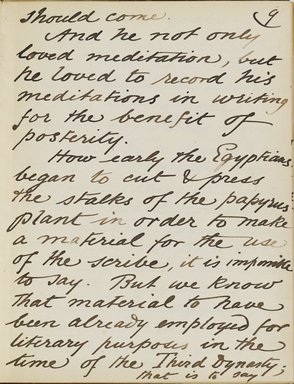 should come. 9
And he not only
loved meditation, but
he loved to record his
meditations in writing
for the benefit of
posterity.
How early the Egyptians
began to cut & press
the stalks of the papyrus
plant in order to make
a material for the use
of the scribe, it is impossible
to say. But we know
that material to have
been already employed for
literary purposes in the
time of the Third Dynasty;
that is to say